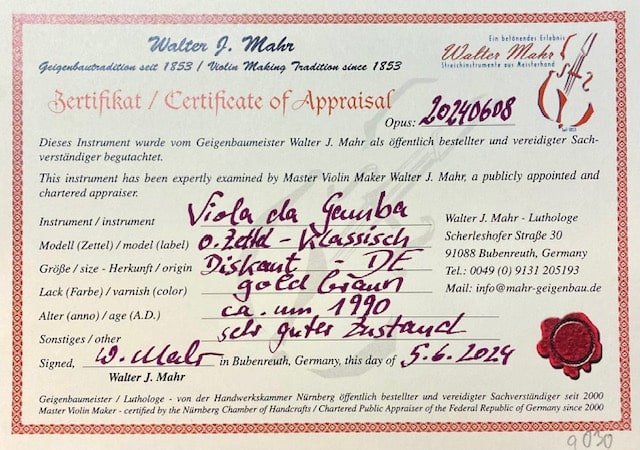 Walter J. Mahr
Geigenbautradition seit 1853 / Violin Making Tradition since 1853
Ein betönendes Erlebnis
Walter Mahr
Streichinstrumente aus Meisterhand
Seit 1853
Zertifikat / Certificate of Appraisal
Opus: 20240608
Dieses Instrument wurde vom Geigenbaumeister Walter J. Mahr als öffentlich bestellter und vereidigter Sach-
verständiger begutachtet.
This instrument has been expertly examined by Master Violin Maker Walter J. Mahr, a publicly appointed and
chartered appraiser.
Instrument / instrument Viola da Gamba
Modell (Zettel) / model (label) o. Zettel - Klassisch
Größe / size - Herkunft / origin Diskant - DE
Lack (Farbe) / varnish (color) gold braun
Alter (anno) / age (A.D.) ca. um 1990
Sonstiges / other sehr guter Zustand
Walter J. Mahr - Luthologe
Scherleshofer Straße 30
91088 Bubenreuth, Germany
Tel.: 0049 (0) 9131 205193
Mail: info@mahr-geigenbau.de
Signed, W. Mahr in Bubenreuth, Germany, this day of 5.6.2024
Walter J. Mahr
Geigenbaumeister / Luthologe - von der Handwerkskammer Nürnberg öffentlich bestellter und vereidigter Sachverständiger seit 2000
Master Violin Maker - certified by the Nürnberg Chamber of Handcrafts / Chartered Public Appraiser of the Federal Republic of Germany since 2000
9030